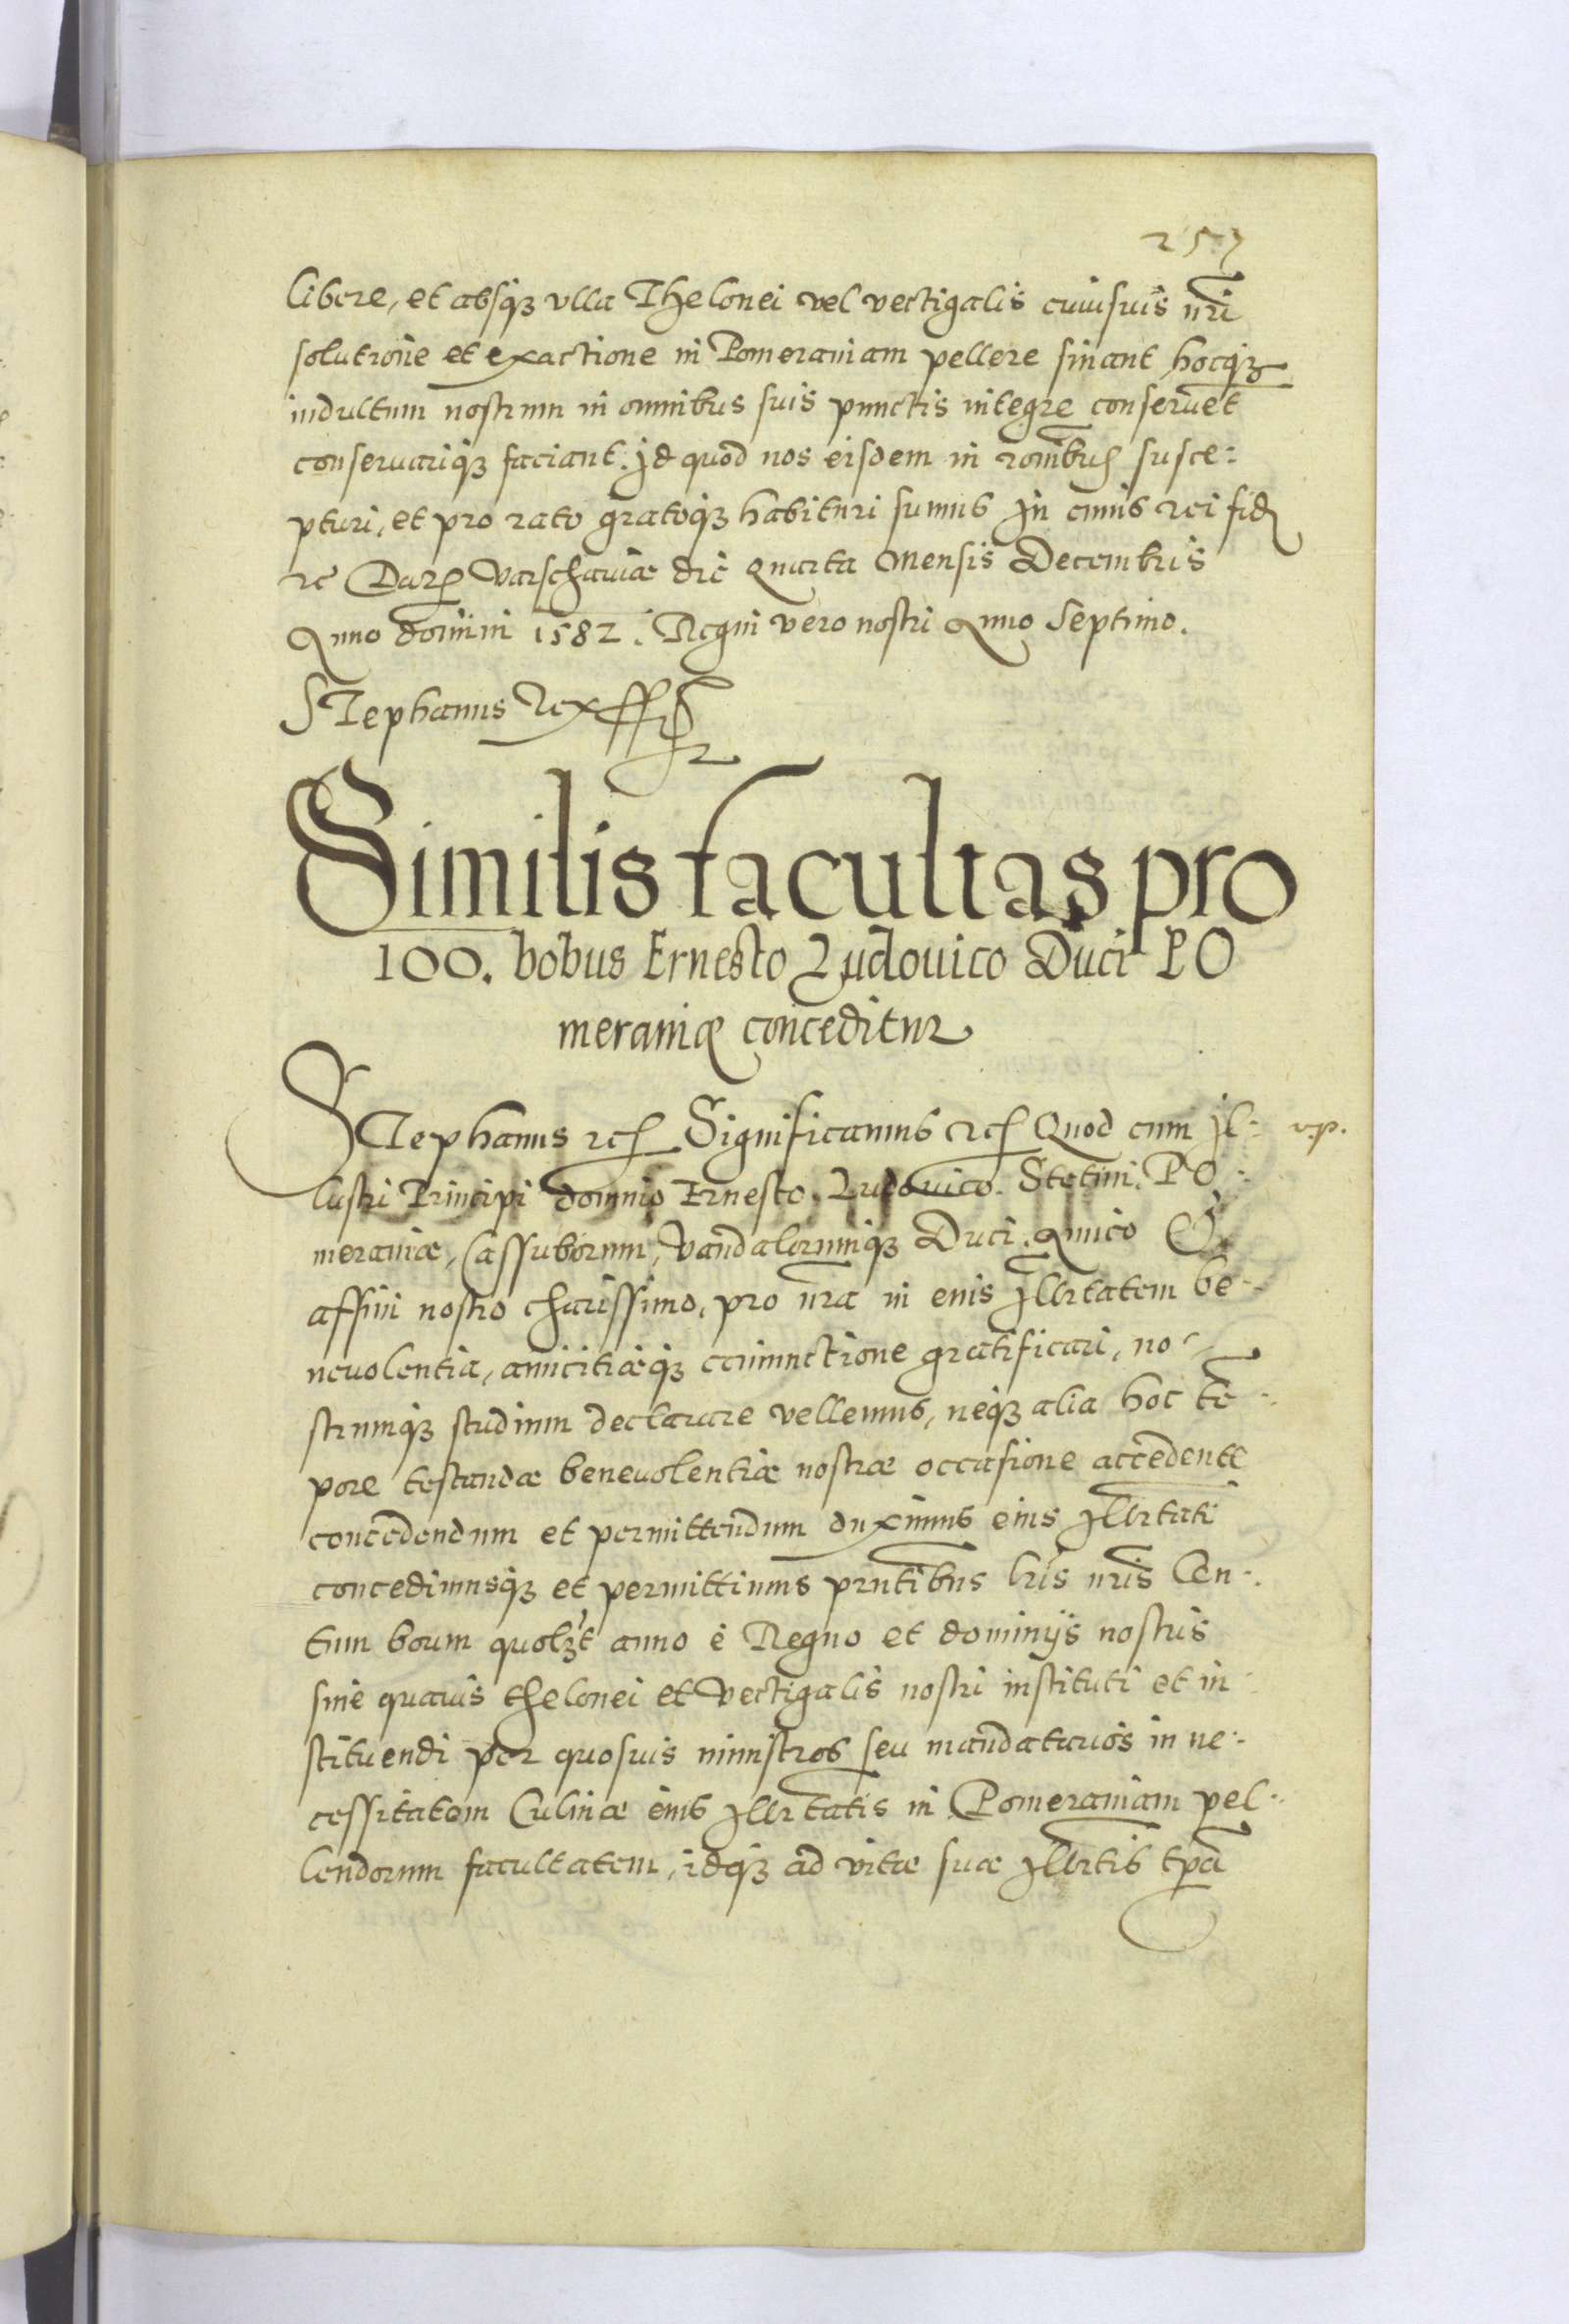 257
libere, et absqꝫ vlla Thelonei vel vectigalis cuiusuis nr̃i
solutione et exactione in Pomeraniam pellere sinant hocqꝫ
indultum nostrum in omnibus suis punctis integre conseruet
conseruariqꝫ faciant. Id quod nos eisdem in rõnibus susce:
pturi, et pro rato gratoqꝫ habituri sumus In cuius rei fidẽ
rc̃ Datꝫ Varschauiæ die quarta Mensis Decembris
Anno domini 1582. Regni vero nostri Anno Septimo.
STephanus Rex ssr̃
Similis facultas pro
100. bobus Ernesto Ludouico Duci PO
meraniæ conceditur
STephanus rcꝭ Significamus rcꝭ Quod cum Il: v.p.
lustri Principi domino Ernesto. Ludouico. Stetini. PO:
meraniæ, Cassuborum, Vandalorumqꝫ Duci. Amico Et
affini nostro charissimo, pro nr̃a in eius Illrtatem be:
neuolentia, amicitiæqꝫ coniunctione gratificari, no:
strumqꝫ studium declarare vellemus, neqꝫ alia hoc tẽ:
pore testandæ beneuolentiæ nostræ occasione accedente
concedendum et permittendum duximus eius Illrtati
concedimusqꝫ et permittimus pr̃ntibus lr̃is nr̃is Cen:
tum boum quolꝫt anno è Regno et dominijs nostris
sine quauis thelonei et Vectigalis nostri instituti et in
stituendi per quosuis ministros seu mandatarios in ne:
cessitatem Culinæ eius Illrtatis in Pomeraniam pel:
lendorum facultatem, idqꝫ ad vitæ suæ Illrtis tp̃a